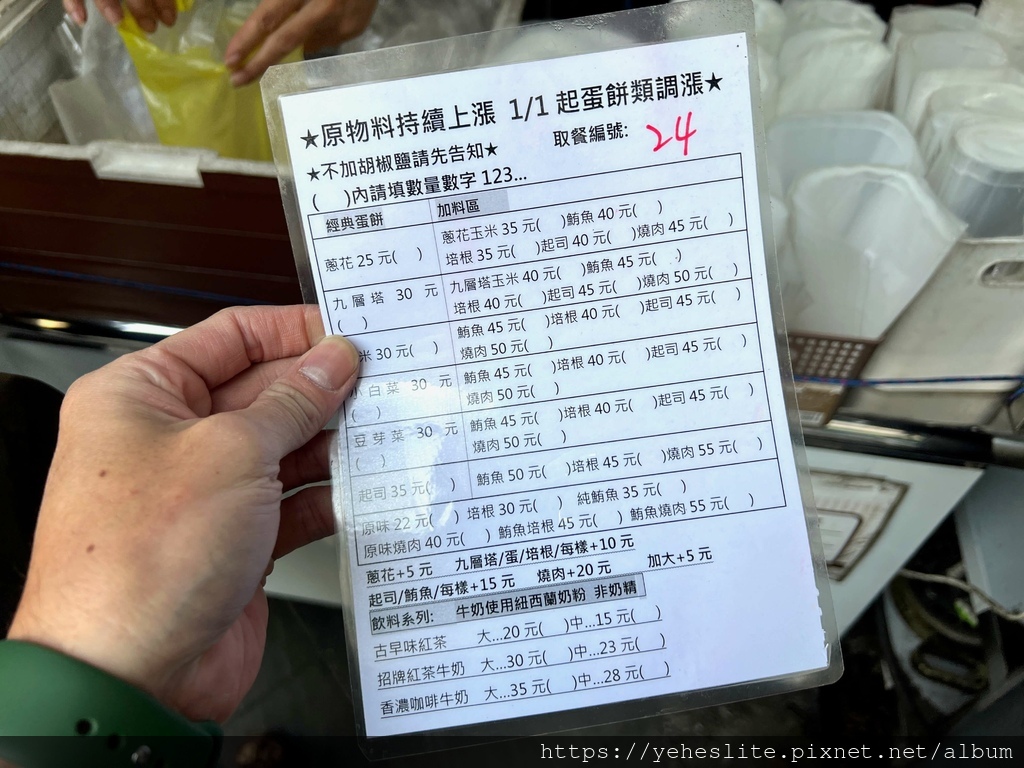 ★原物料持續上漲 1/1 起蛋餅類調漲★
★不加胡椒鹽請先告知★ 取餐編號: 24
( )內請填數量數字 123...
經典蛋餅 加料區
蔥花 25 元( ) 蔥花玉米 35 元( )鮪魚 40 元( )
培根 35 元( )起司 40 元( )燒肉 45 元( )
九層塔 30 元 九層塔玉米 40 元( )鮪魚 45 元( )
( ) 培根 40 元( )起司 45 元( )燒肉 50 元( )
米 30 元( ) 鮪魚 45 元( )培根 40 元( )起司 45 元( )
燒肉 50 元( )
小白菜 30 元 鮪魚 45 元( )培根 40 元( )起司 45 元( )
( ) 燒肉 50 元( )
豆芽菜 30 元 鮪魚 45 元( )培根 40 元( )起司 45 元( )
( ) 燒肉 50 元( )
起司 35 元( ) 鮪魚 50 元( )培根 45 元( )燒肉 55 元( )
原味 22 元( ) 培根 30 元( ) 純鮪魚 35 元( )
原味燒肉 40 元( ) 鮪魚培根 45 元( ) 鮪魚燒肉 55 元( )
蔥花+5 元 九層塔/蛋/培根/每樣+10 元
起司/鮪魚/每樣+15 元 燒肉+20 元 加大+5 元
飲料系列: 牛奶使用紐西蘭奶粉 非奶精
古早味紅茶 大...20 元( )中...15 元( )
招牌紅茶牛奶 大...30 元( )中...23 元( )
香濃咖啡牛奶 大...35 元( )中...28 元( )
https://yeheslite.pixnet.net/album